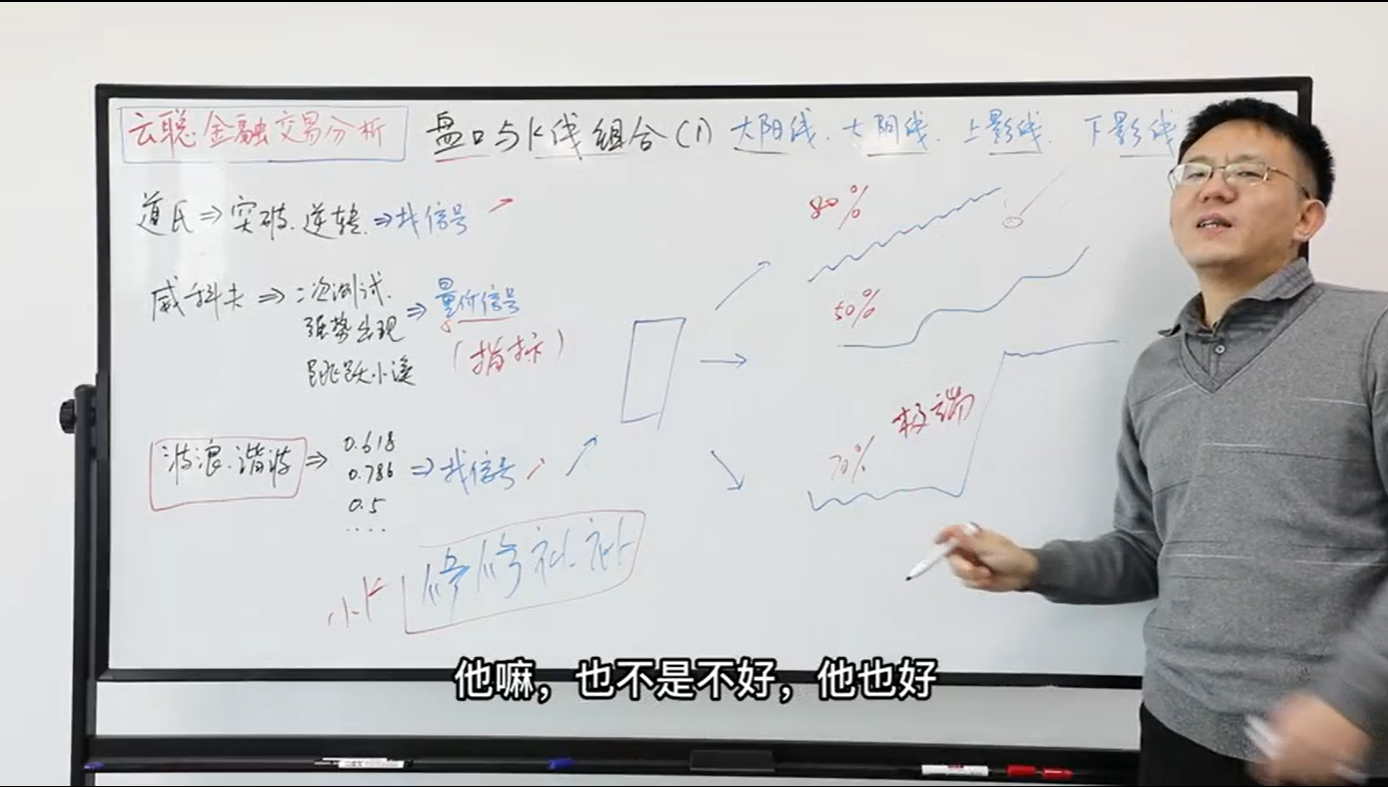 云聪金融交易分析 盘口与K线组合(1) 大阳线、大阴线、上影线、下影线
道氏⇒突破、逆转、⇒找信号
80%
威科夫⇒二次测试、
强势出现
跳跃小溪
⇒量价信号
(指标)
50%
极端
70%
波浪、谐波⇒
0.618
0.786
0.5
....
⇒找信号
小K
修修补补
他嘛，也不是不好，他也好